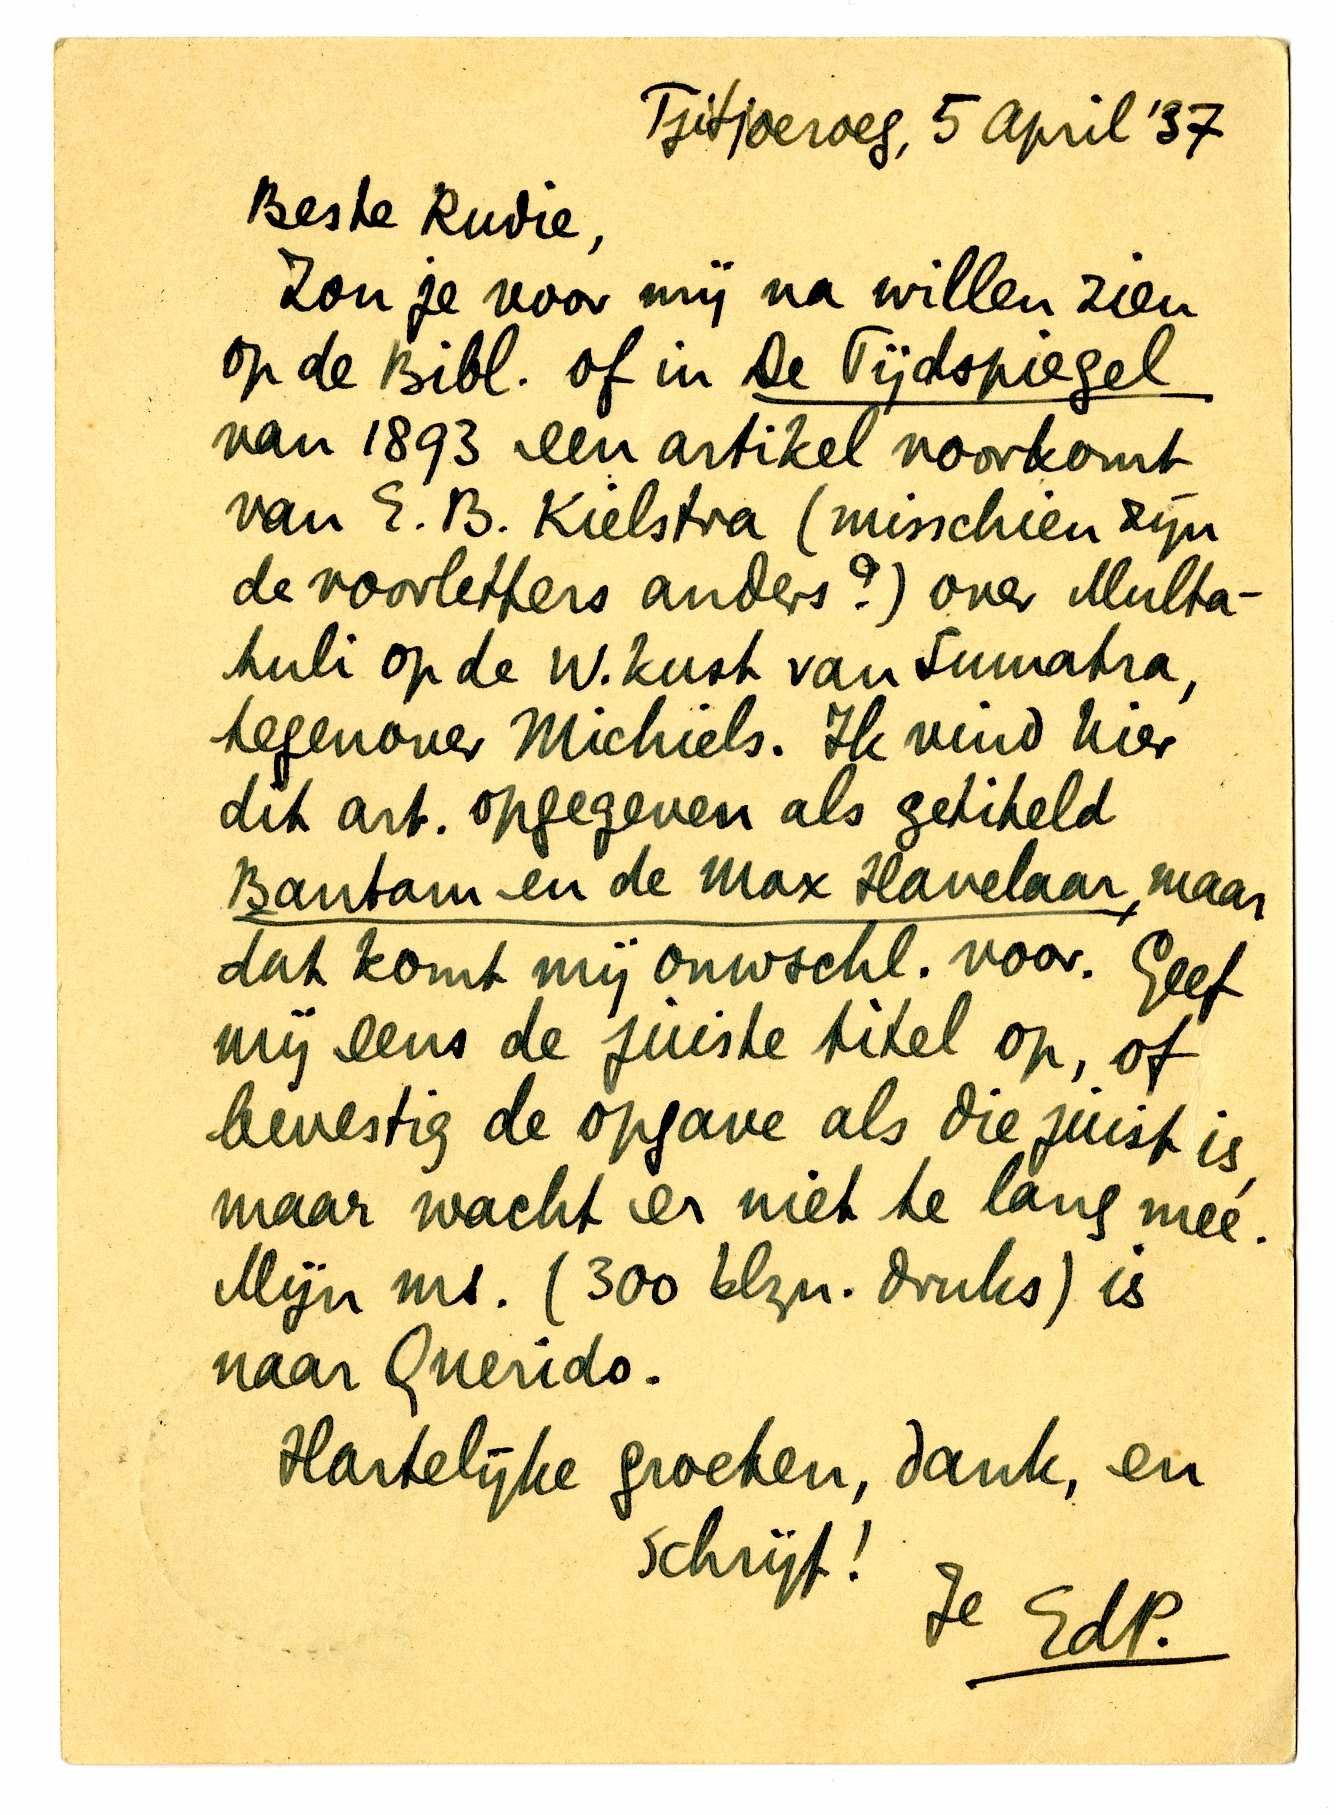 Tjitjoeroeg, 5 April '37
Beste Rudie,
Zou je voor mij na willen zien
op de Bibl. of in De Tijdspiegel
van 1893 een artikel voorkomt
van E. B. Kielstra (misschien zijn
de voorletters anders?) over Multa-
tuli op de W. kust van Sumatra,
tegenover Michiels. Ik vind hier
dit art. opgegeven als getiteld
Bantam en de Max Havelaar, maar
dat komt mij onwschl. voor. Geef
mij eens de juiste titel op, of
bevestig de opgave als die juist is,
maar wacht er niet te lang meé.
Mijn ms. (300 blzn. druks) is
naar Querido.
Hartelijke groeten, dank, en
schrijf!
Je EdP.